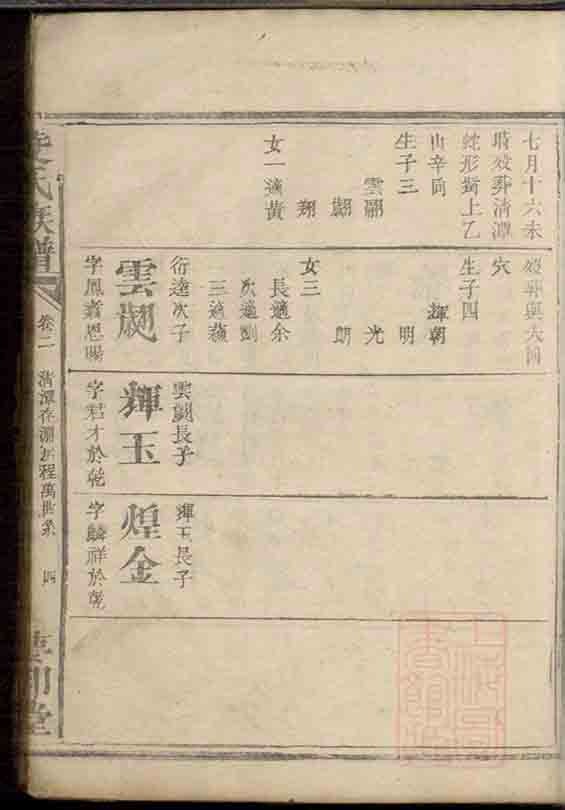 七月十六未
時歿葬清潭
蛇形嘴上乙
山辛向
生子三
雲翮
翮
翔
女一適黃
歿葬與夫同
穴
生子四
輝朝
明
光
朗
女三
長適余
次適劉
三適
衍達次子
雲
字鳳耆恩賜
雲 長子
輝玉
字君才於乾
輝玉長子
煌金
字麟祥於乾
氏族譜
卷二
清潭 程萬世系
四
堂
上海圖書館藏